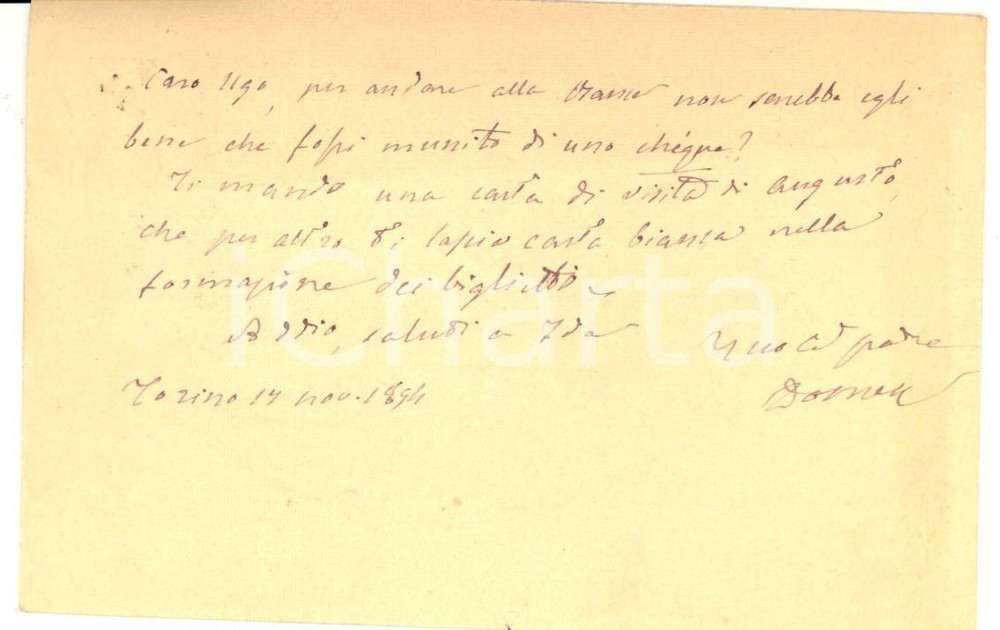 Caro Ugo, per andare alla non sarebbe egli
bene che fossi munito di uno chéque?
Ti mando una carta di visita di Augusto,
che per altro ti lascio carta bianca nella
formazione dei biglietti
Addio, saluti a Ida
Tuo padre
Torino 17 nov. 1894
iCharta